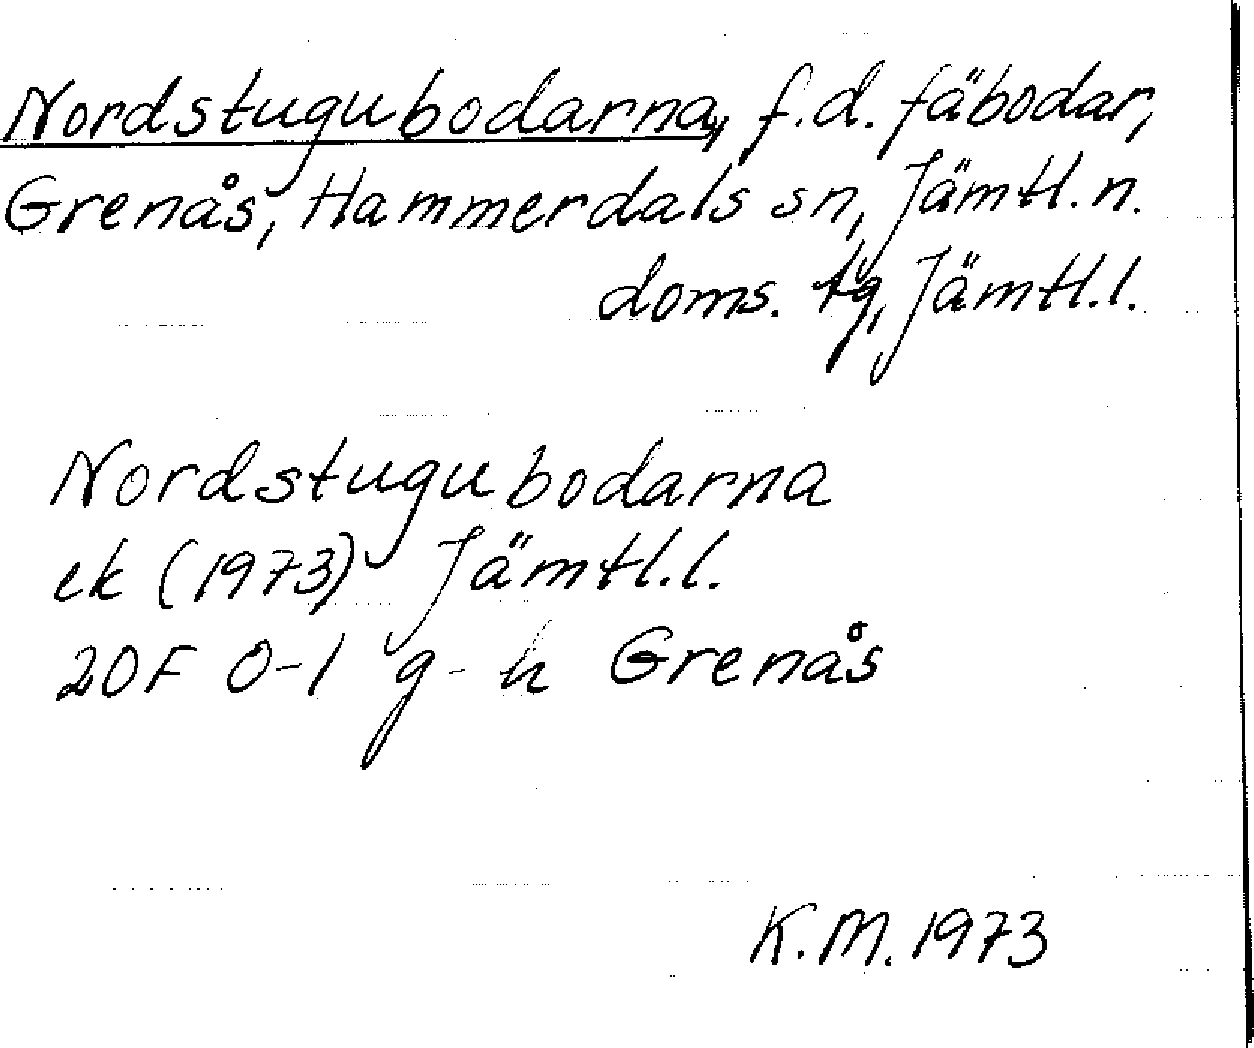 Nordstugubodarna, f.d. fäbodar,
Grenås, Hammerdals sn, Jämtl. n.
doms. tg, Jämtl. l.
Nordstugubodarna
ek (1973) Jämtl. l.
20F 0-1 g-h Grenås
K.M. 1973